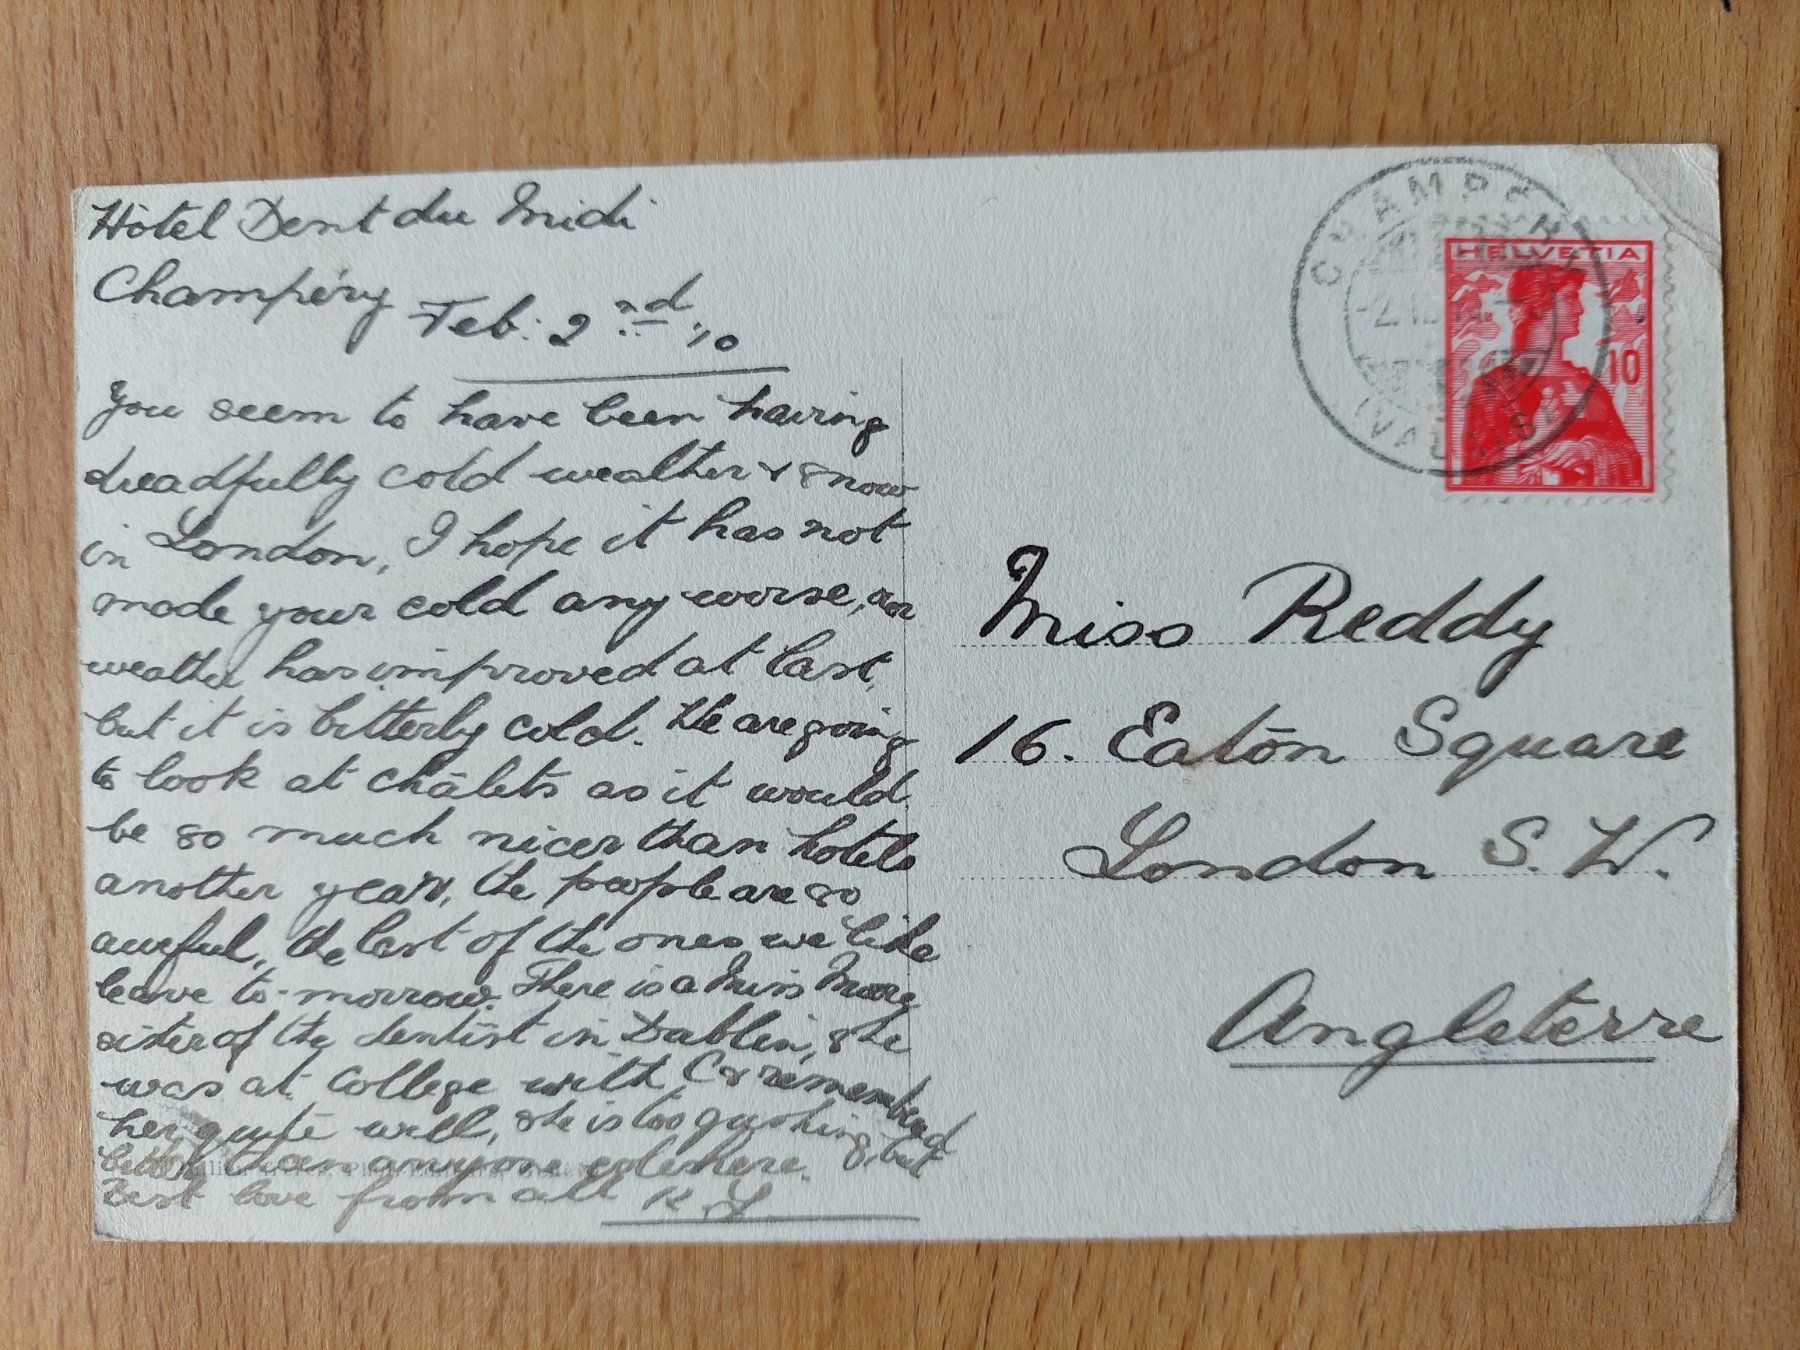 Hôtel Dent du Midi
Champéry Feb: 2nd '10
You seem to have been having
dreadfully cold weather & snow
in London, I hope it has not
made your cold any worse, our
weather has improved at last,
but it is bitterly cold. We are going
to look at châlets as it would
be so much nicer than hotels
another year, the people are so
awful, the last of the ones we like
leave to-morrow. There is a Miss
sister of the dentist in Dublin, she
was at College with C & remembered
her quite well, she is too gushing, but
better than anyone else here.
Best love from all K.L
CHAMPÉRY
(VALAIS)
HELVETIA
10
Miss Reddy
16. Eaton Square
London S.W.
Angleterre